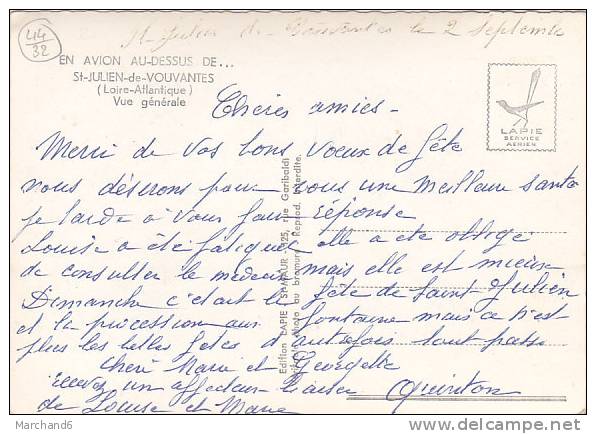 44
32
St Julien de Vouvantes le 2 Septembre
EN AVION AU-DESSUS DE...
St-JULIEN-de-VOUVANTES
(Loire-Atlantique)
Vue générale
LAPIE
SERVICE
AERIEN
Chères amies -
Merci de vos bons voeux de fête
nous désirons pour vous une meilleure santé
je tarde a vous faire réponse
Louise a été fatiguée elle a été obligé
de consulter le médecin mais elle est mieux
Dimanche c'était la fête de Saint Julien
et la procession aux fontaine mais ce n'est
plus les belles fêtes d'autrefois tout passe
Chère Marie et Georgette
recevez un affectueux baiser
de Louise et Marie
Quinton
Edition LAPIE, rue Garibaldi
photo au bromure Reprod. interdite.
Marchand6
www.delcampe.net